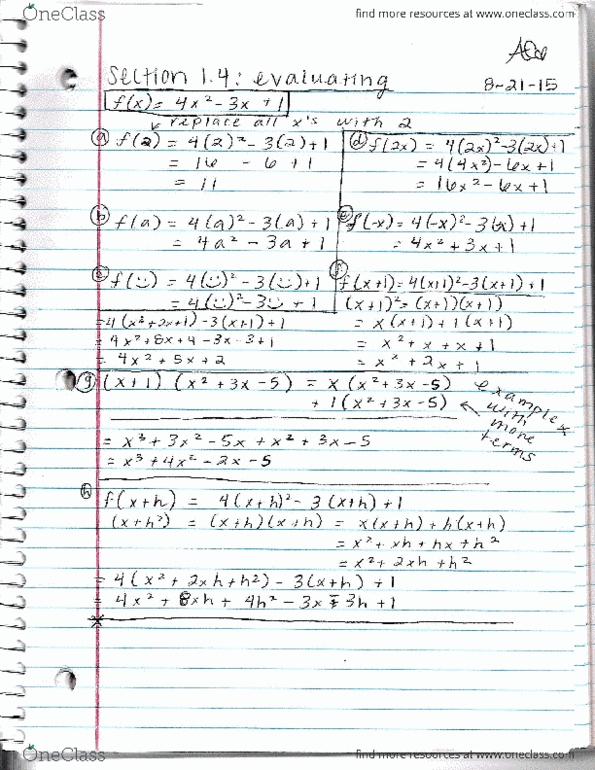 OneClass
find more resources at www.oneclass.com
Section 1.4: evaluating
8-21-15
f(x) = 4x² - 3x + 1
replace all x's with 2
a f(2) = 4(2)² - 3(2) + 1
= 16 - 6 + 1
= 11
d f(2x) = 4(2x)² - 3(2x) + 1
= 4(4x²) - 6x + 1
= 16x² - 6x + 1
b f(a) = 4(a)² - 3(a) + 1
= 4a² - 3a + 1
e f(-x) = 4(-x)² - 3(-x) + 1
= 4x² + 3x + 1
f(☺) = 4(☺)² - 3(☺) + 1
= 4(☺)² - 3☺ + 1
f f(x+1) = 4(x+1)² - 3(x+1) + 1
(x+1)² = (x+1)(x+1)
= x(x+1) + 1(x+1)
= x² + x + x + 1
= x² + 2x + 1
= 4(x² + 2x + 1) - 3(x+1) + 1
= 4x² + 8x + 4 - 3x - 3 + 1
= 4x² + 5x + 2
g (x+1) (x² + 3x - 5) = x(x² + 3x - 5)
+ 1(x² + 3x - 5)
example with more terms
= x³ + 3x² - 5x + x² + 3x - 5
= x³ + 4x² - 2x - 5
h f(x+h) = 4(x+h)² - 3(x+h) + 1
(x+h²) = (x+h)(x+h) = x(x+h) + h(x+h)
= x² + xh + hx + h²
= x² + 2xh + h²
= 4(x² + 2xh + h²) - 3(x+h) + 1
= 4x² + 8xh + 4h² - 3x - 3h + 1
OneClass
find more resources at www.oneclass.com